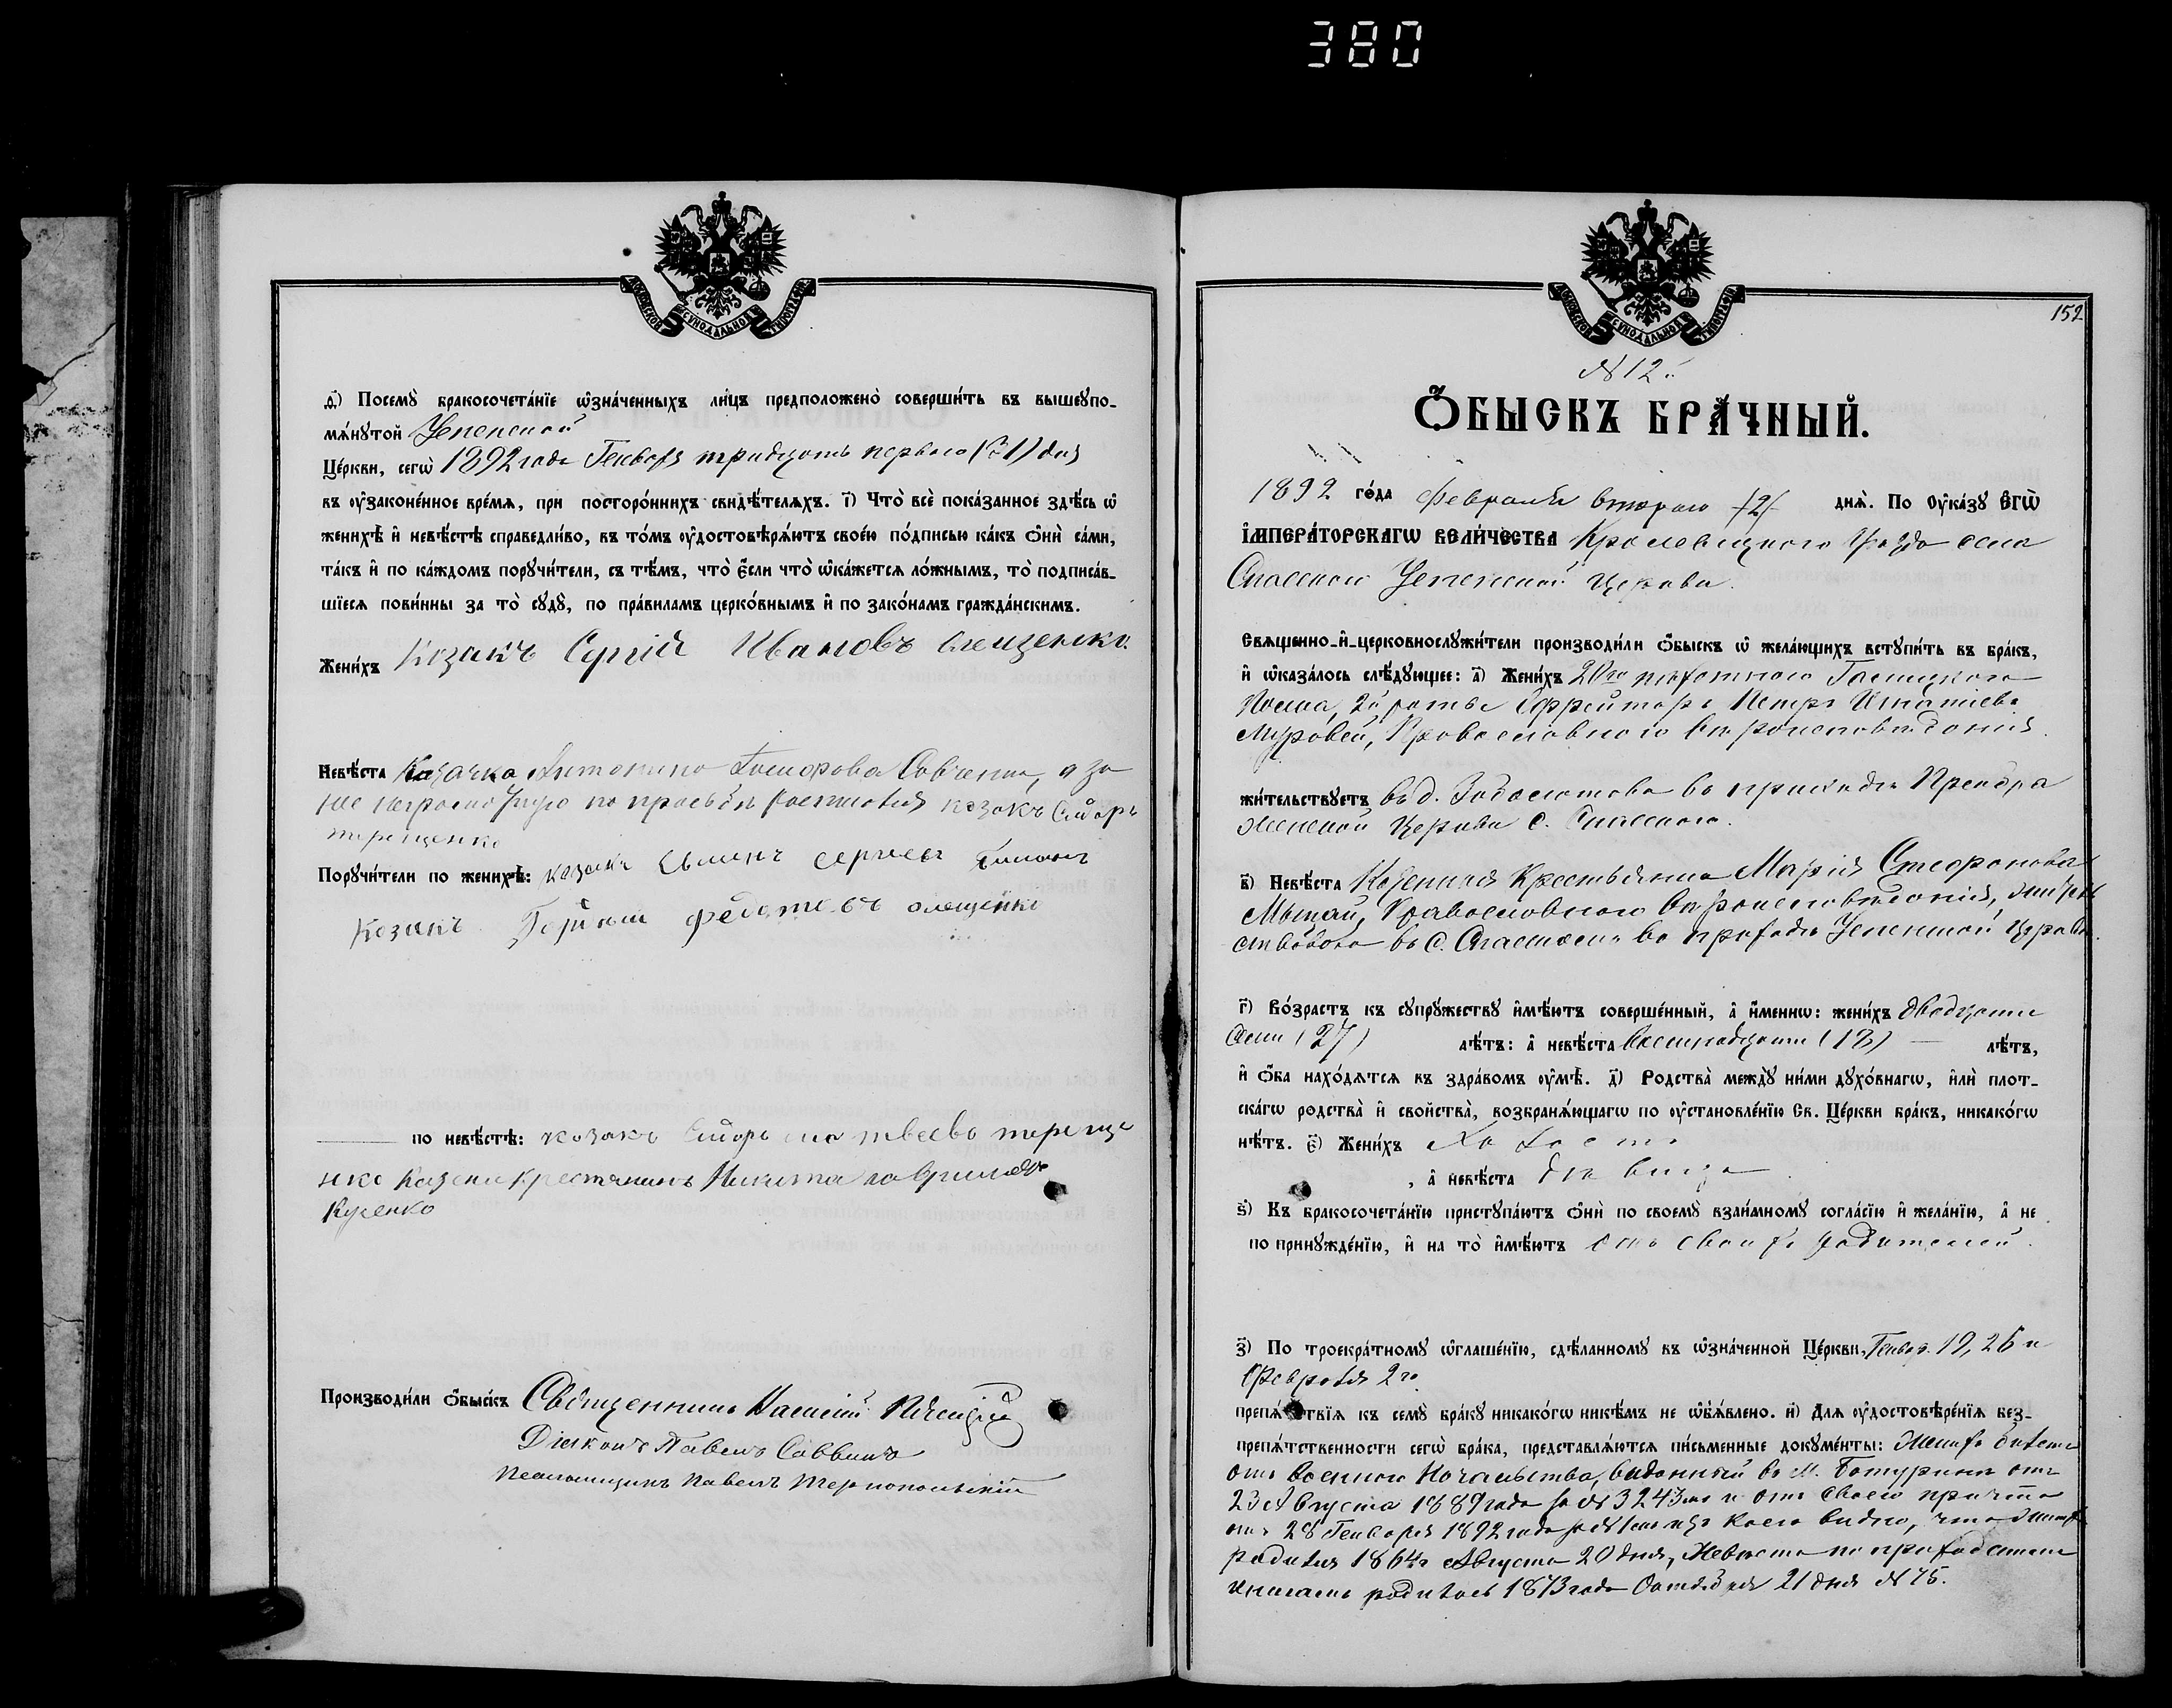 380
МОСКОВСКОЙ СѴНОДАЛЬНОЙ ТИПОГРАФІИ
ѳ҃) Посемꙋ̀ бракосочета́нїе ѡ҆зна́ченныхъ ли́цъ предположено̀ соверши́ть въ вышеꙋпо-
мѧ́нꙋтой Успенской
Це́ркви, сегѡ̀ 1892 года Генваря тридцать перваго (31) дня
въ ᲂу҆законе́нное вре́мѧ, при посторо́ннихъ свидѣ́телѧхъ. і҃) Что̀ всѐ пока́занное здѣ́сь ѡ҆
женихѣ̀ и҆ невѣ́стѣ справедли́во, въ то́мъ ᲂу҆достовѣрѧ́ютъ свое́ю по́дписью ка́къ ѻ҆нѝ са́ми,
та́къ и҆ по ка́ждомъ порꙋчи́тели, съ тѣ́мъ, что̀ є҆́сли что̀ ѡ҆ка́жетсѧ ло́жнымъ, то̀ подписа́в-
шїесѧ пови́нны за то̀ сꙋдꙋ̀, по пра́виламъ церко́внымъ и҆ по зако́намъ гражда́нскимъ.
Жени́хъ Козакъ Сергій Ивановъ
Невѣ́ста Козачка Антонина Савченко, а за
нее неграмотную по просьбѣ росписался козакъ Сидоръ
терещенко
Порꙋчи́тели по женихѣ̀: козакъ сергеев
Козакъ федотовъ
по невѣ́стѣ: козакъ Сидоръ матвеевъ тереще
нко Казени крестянинъ Никита гавриловъ
Куценко
Производи́ли ѻ҆́быскъ Священникъ
Діяконъ Павелъ Саввинъ
Псаломщикъ Павелъ Тернопольскій
МОСКОВСКОЙ СѴНОДАЛЬНОЙ ТИПОГРАФІИ
152
№ 12.
Ѻ҆́БЫСКЪ БРА́ЧНЫЙ.
1892 го́да февраля второго /2/ днѧ̀. По Оу҆ка́зꙋ Є҆гѡ̀
І҆мпера́торскагѡ Вели́чества Кролевецкаго Уѣзда села
Спасскаго Успенской церкви.
Свѧщенно-и҆-церковнослꙋжи́тели производи́ли ѻ҆́быскъ ѡ҆ жела́ющихъ встꙋпи́ть въ бра́къ,
и҆ ѡ҆каза́лось слѣ́дꙋющее: а҃) Жени́хъ 20го пѣхотнаго Галицкаго
Полка, 2й роты Ефрейторъ Петръ Игнатіевъ
Муровей, Православнаго вѣроисповѣданія.
жи́тельствꙋетъ въ д. въ приходѣ Преобра
женской Церкви с. Спасскаго.
в҃) Невѣ́ста Козенная Крестьянка Марія Стефанова
Православнаго вѣроисповѣданія, жител
ствовала въ с. Спасскомъ въ приходѣ Успенской Церкви.
г҃) Во́зрастъ къ сꙋпрꙋ́жествꙋ и҆мѣ́ютъ соверше́нный, а҆ и҆́меннѡ: жени́хъ двадцати
семи (27) лѣ́тъ: а҆ невѣ́ста восемнадцати (18) — лѣ́тъ,
и҆ ѻ҆́ба нахо́дѧтсѧ въ здра́вомъ ᲂу҆мѣ̀. д҃) Родства̀ междꙋ̀ ни́ми дꙋхо́внагѡ, и҆лѝ плот-
ска́гѡ родства̀ и҆ свойства̀, возбранѧ́ющагѡ по ᲂу҆становле́нїю Св. Це́ркви бра́къ, никако́гѡ
нѣ́тъ. є҃) Жени́хъ Холостъ
, а҆ невѣ́ста дѣвица
ѕ҃) Къ бракосочета́нїю пристꙋпа́ютъ ѻ҆нѝ по своемꙋ̀ взаи́мномꙋ согла́сїю и҆ жела́нїю, а҆ не
по принꙋжде́нїю, и҆ на то̀ и҆мѣ́ютъ отъ своихъ родителей.
з҃) По троекра́тномꙋ ѡ҆глаше́нїю, сдѣ́ланномꙋ въ ѡ҆зна́ченной Це́ркви, Генвар. 19, 26 и
Февраля 2го
препѧ́тствїѧ къ семꙋ̀ бра́кꙋ никако́гѡ никѣ́мъ не ѡ҆б̾ѧ́влено. и҃) Длѧ ᲂу҆достовѣре́нїѧ без-
препѧ́тственности сегѡ̀ бра́ка, представлѧ́ютсѧ пи́сьменные докꙋме́нты: Жениха билетъ
отъ военнаго Начальства, выданный въ М. Батуринѣ отъ
23 Августа 1889 года за № 3243мъ и отъ своего причта
отъ 28 Генваря 1892 года за № изъ коего видно, что женихъ
родился 1864г Августа 20 дня, Невѣста по приходскимъ
книгамъ родилась 1873 года Октября 21 дня № 75.